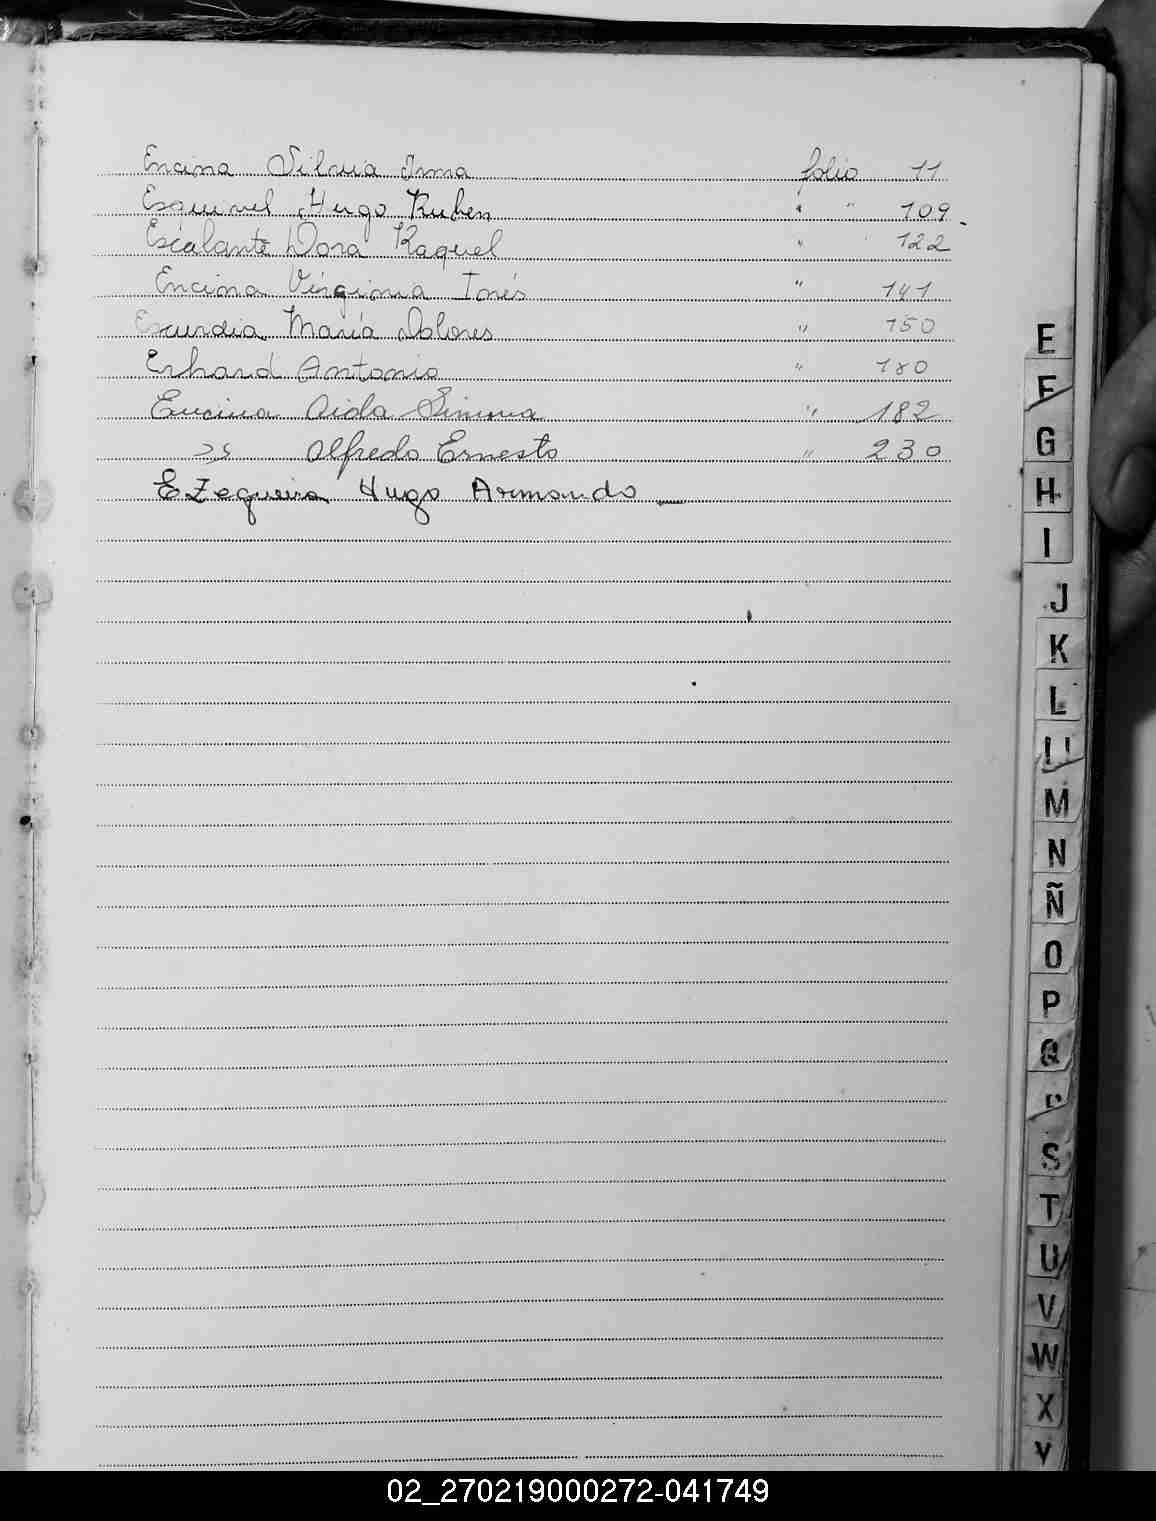 Encina Silvia Irma folio 11
Esquivel Hugo Ruben " " 109.
Escalante Dora Raquel " 122
Encina Virginia Inés " 141
Escurdia María Dolores " 150
Erhard Antonio " 180
Encina Aida Simona " 182
" Alfredo Ernesto " 230
Ezequeira Hugo Armando
E
F
G
H
I
J
K
L
M
N
Ñ
O
P
Q
S
T
U
V
W
X
Y
02_270219000272-041749